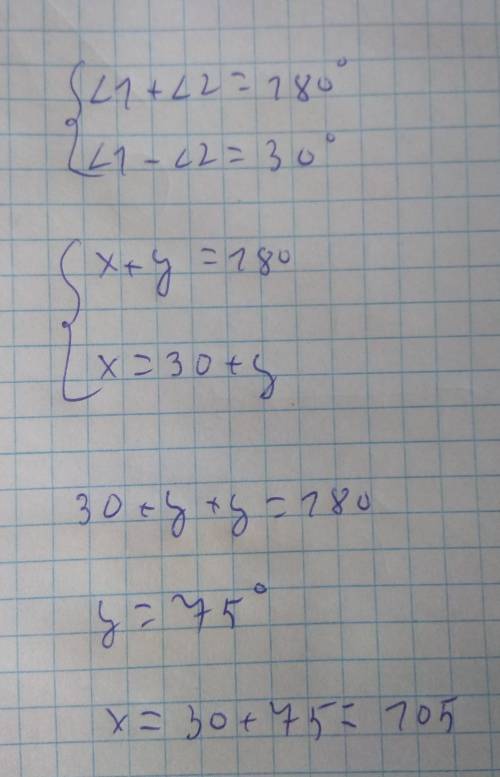 {∠1 + ∠2 = 180°
∠1 - ∠2 = 30°
{x + y = 180
x = 30 + y
30 + y + y = 180
y = 75°
x = 30 + 75 = 105